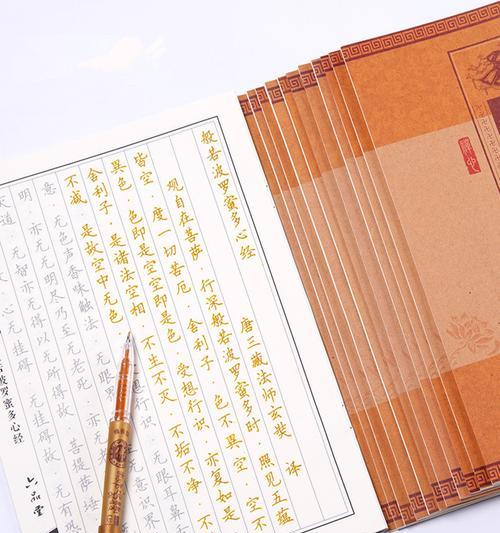 般若波罗蜜多心经 唐三藏法师玄奘 译
观自在菩萨，行深般若波罗蜜多时，照见五蕴
皆空，度一切苦厄，舍利子，色不异空，空不
异色，色即是空空即是色，受想行识，亦复如是
舍利子，是诸法空相，不生不灭 不垢不净，不
不减 是故空中无色 无眼耳鼻
意，无色声香味触法 无眼 无意识界
明 亦无无明尽乃至无老死
道 无智亦无得以无所得故 菩提萨埵
心无挂碍 无挂碍故 无有恐
波罗蜜多心经
六品堂